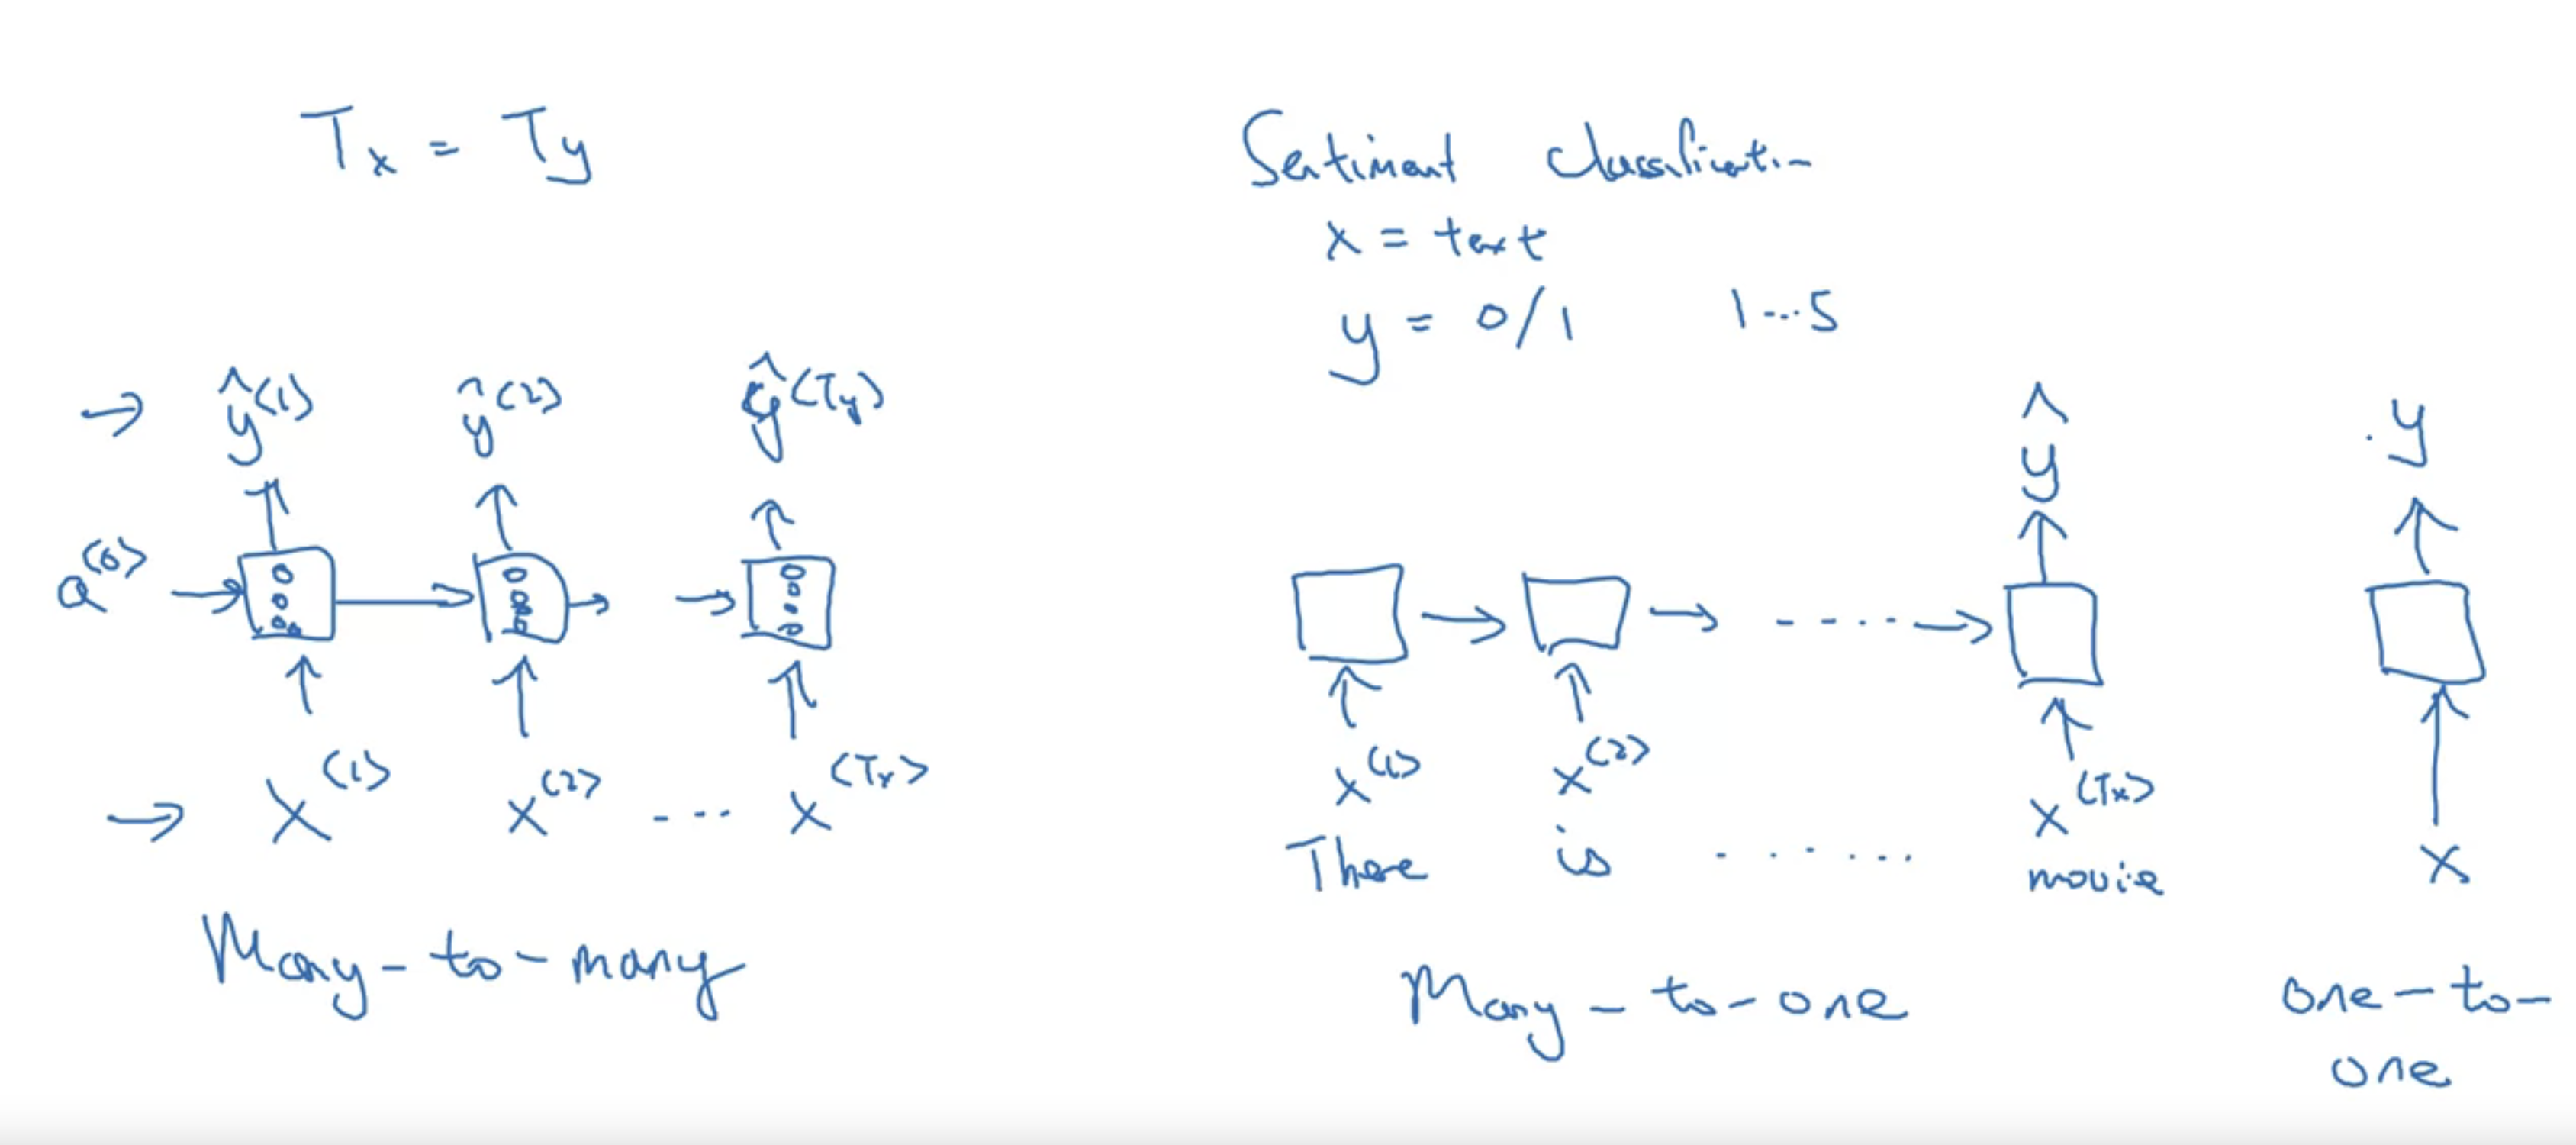 Tx = Ty
ŷ<1> ŷ<2> ŷ<Ty>
a<0>
x<1> x<2> ---- x<Tx>
Many-to-many
Sentiment classification
x = text
y = 0/1 1...5
ŷ
x<1> x<2> x<Tx>
There is ...... movie
Many-to-one
y
x
one-to-
one